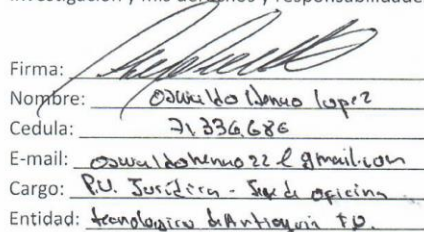 investigación y mis derechos y responsabilidades
Firma:
Nombre: Oswaldo Henao Lopez
Cedula: 71.336.686
E-mail: oswaldohenao22@gmail.com
Cargo: P.U. Jurídica - Jefe de oficina
Entidad: tecnologico de Antioquia